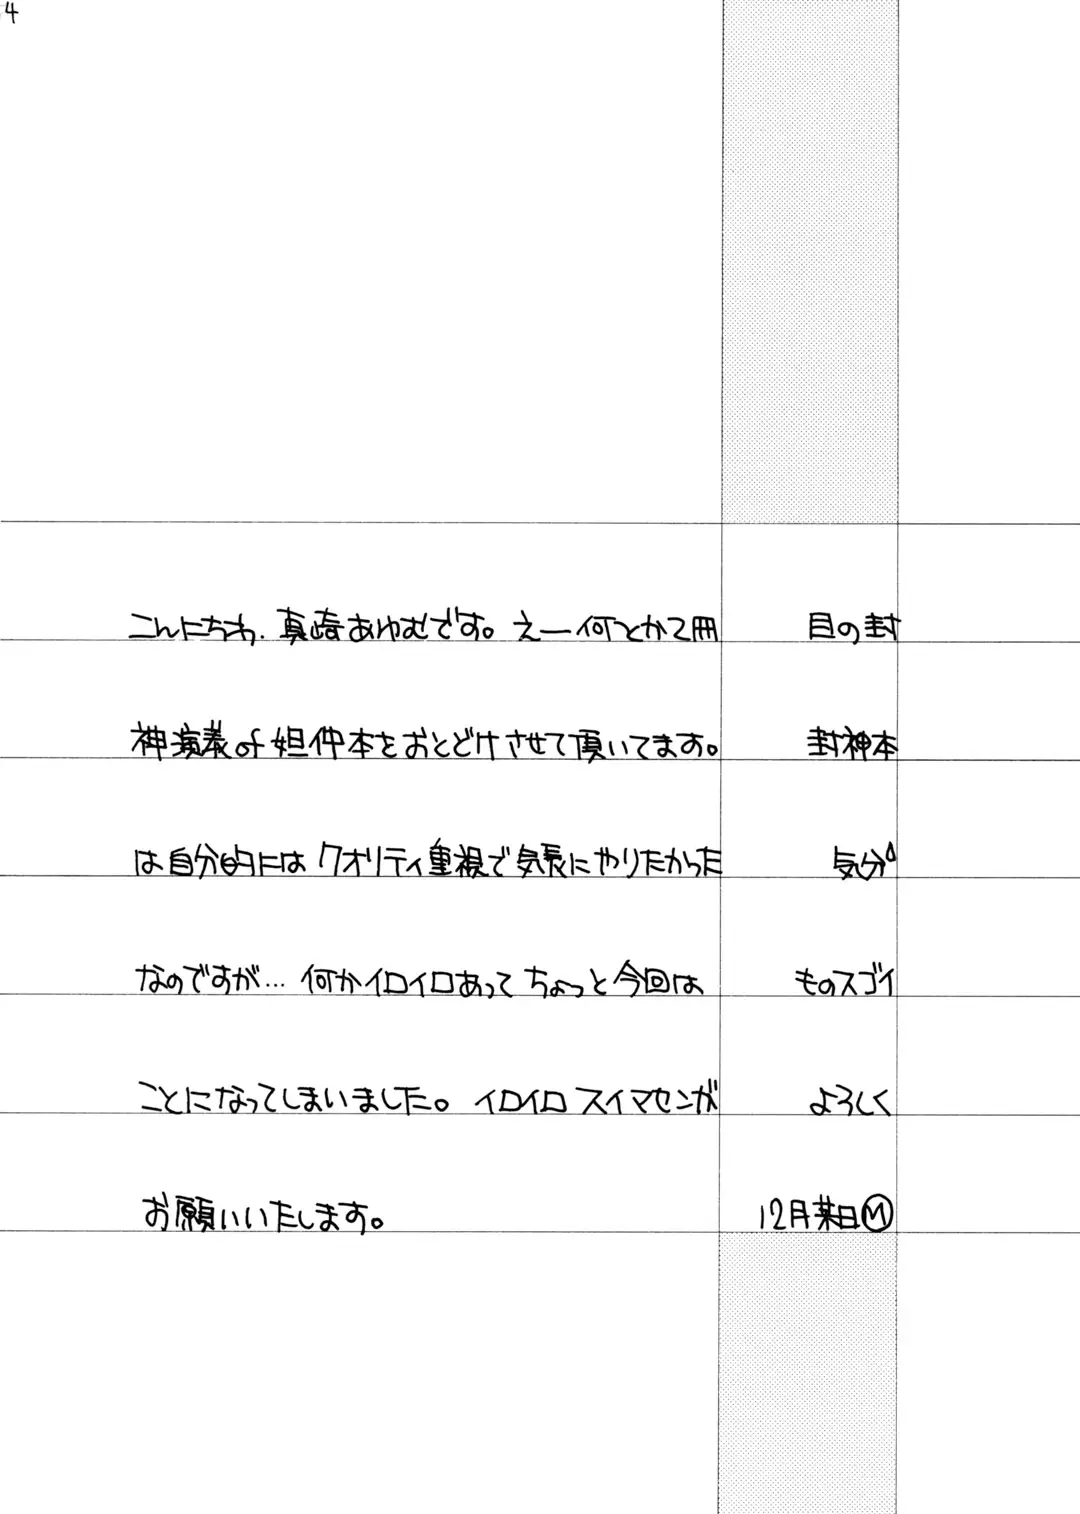 4
こんにちわ、真崎あゆむです。えー何とか2冊目の封
神演義of妲己本をおとどけさせて頂いてます。封神本
は自分的にはクオリティ重視で気長にやりたかった気分
なのですが…何かイロイロあってちょっと今回はものスゴイ
ことになってしまいました。イロイロスイマセンがよろしく
お願いいたします。 12月某日Ⓜ